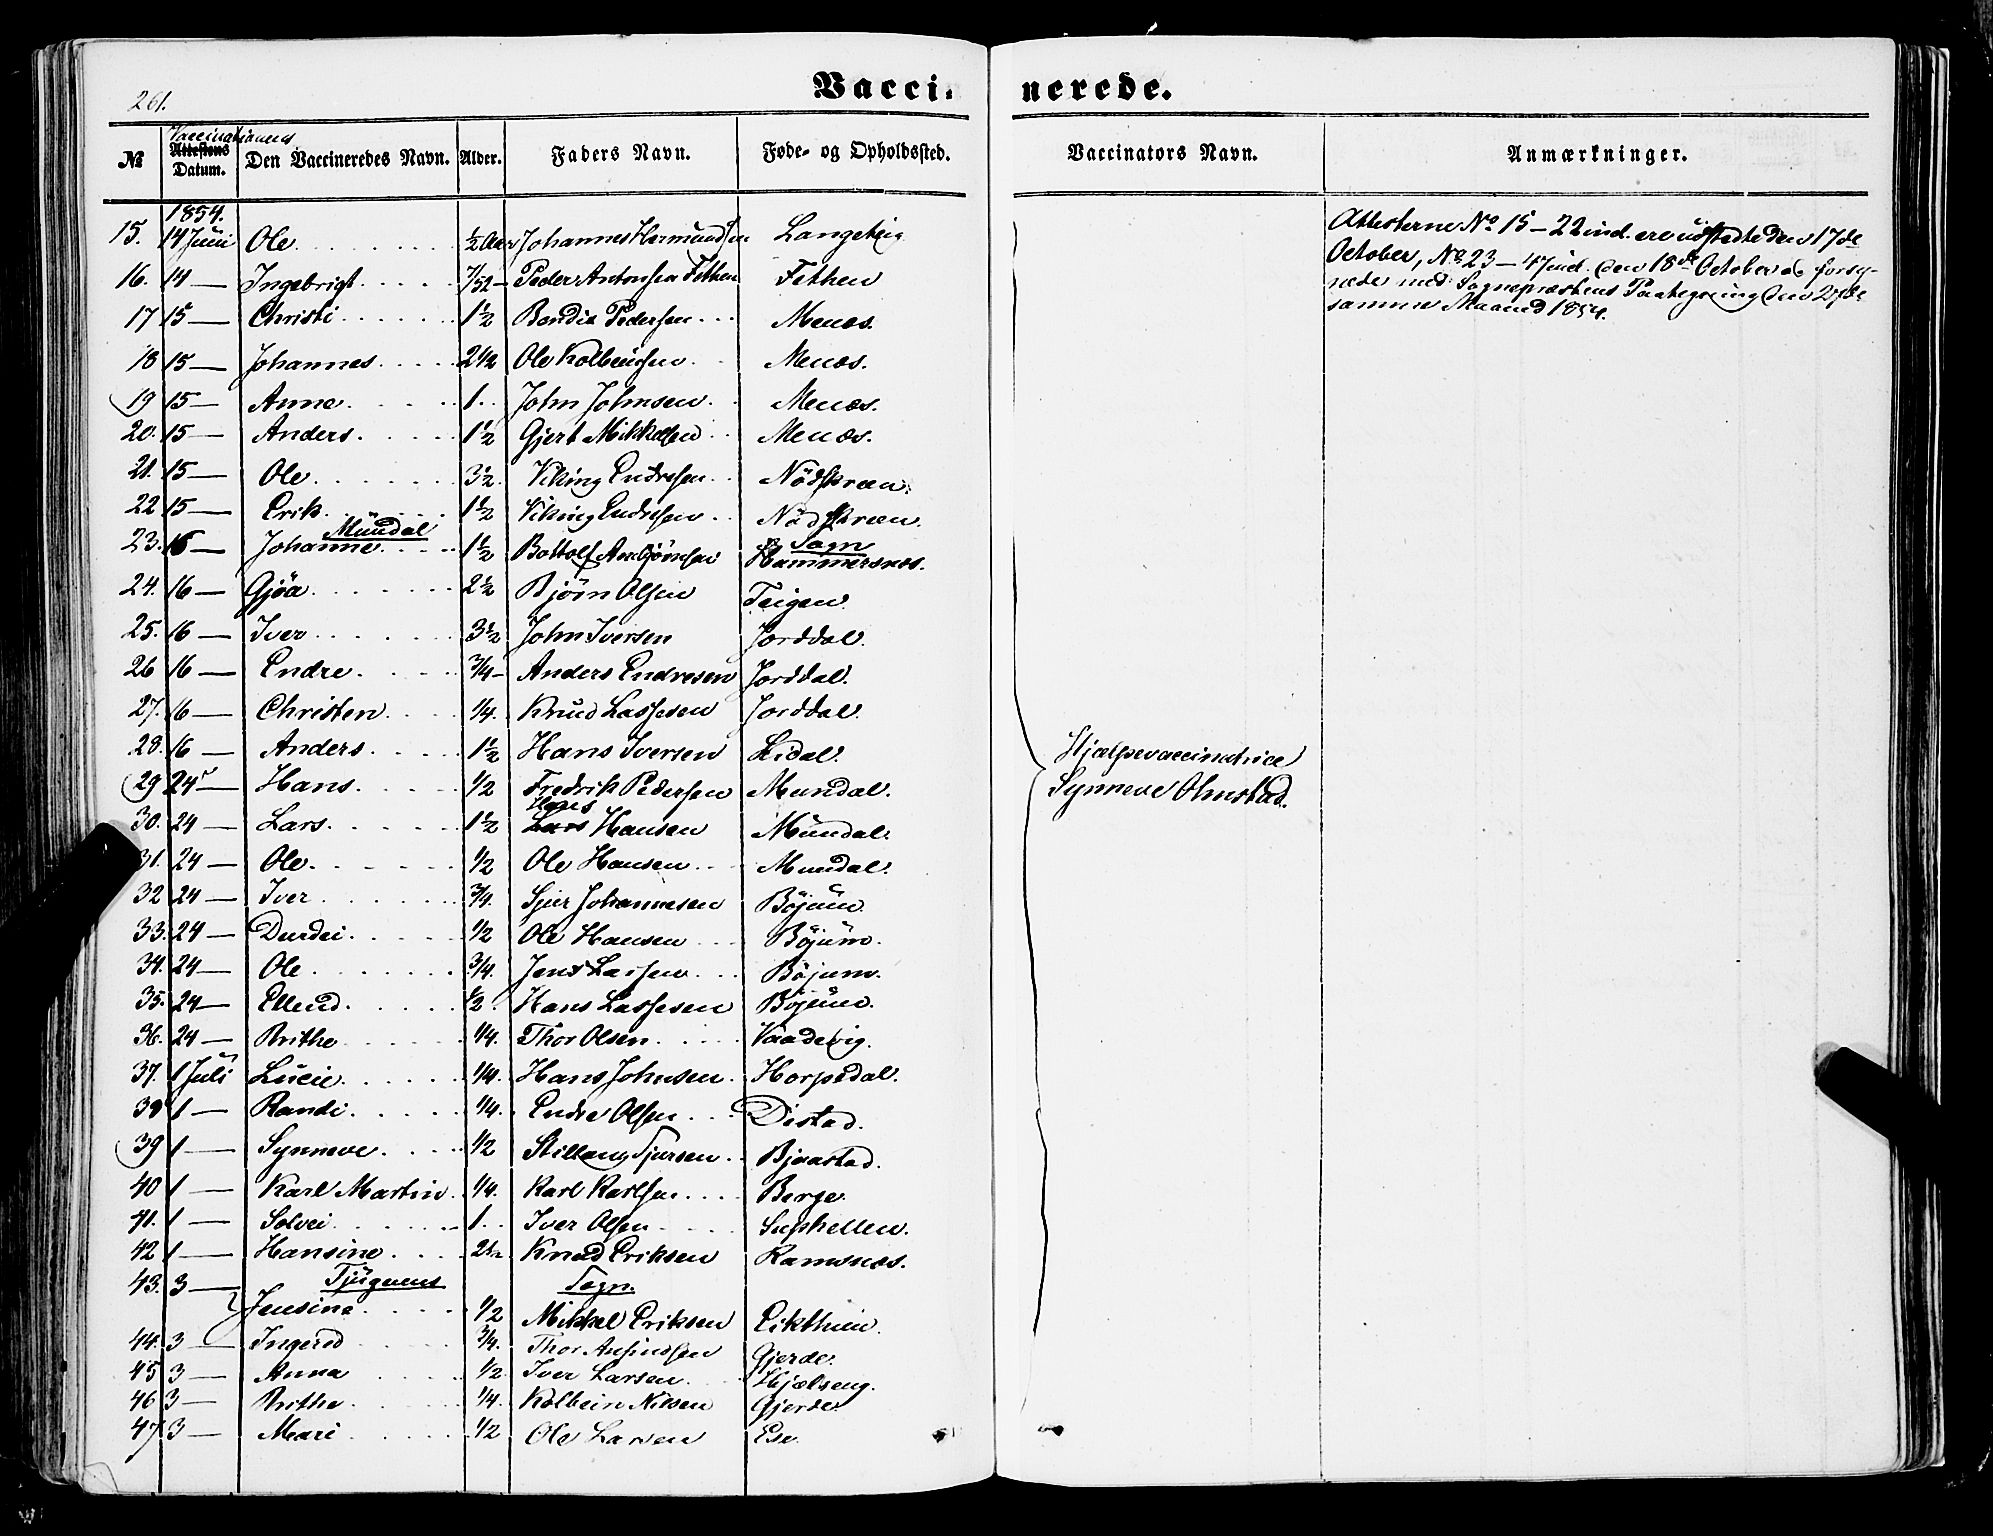 261.
Vaccinerede.
Vaccinationens
No Attestens Datum. Den Vaccineredes Navn. Alder. Faders Navn. Føde- og Opholdssted. Vaccinators Navn. Anmærkninger.
1854.
15. 14 Juni Ole Johannes Hermundsen
16. 14 — Ingebrigt 7/52 — Peder Antonsen Fethen Fethen
17 15 — Christi 1½ Pedersen Menæs.
18 15 — Johannes 2½ Ole Kolbeinsen Menæs.
19 15 — Anne 1 John Johnsen Menæs.
20. 15 — Anders 1½ Gjert Mikkelsen Menæs.
21. 15 — Ole 3½ Viking Endresen
22 15 — Erik 1½ Viking Endresen
Mundal Sogn
23. 16 — Johanne 1½ Bottolf Hammersnæs.
24. 16 — Gjöa 2½ Bjórn Olsen Teigen
25. 16 — Iver 3½ John Iversen Jorddal.
26 16 — Endre ¾ — Anders Endresen Jorddal.
27. 16 — Christen ¼ Knud Lassesen Jorddal.
28. 16 — Anders 1½ Hans Iversen Lidal.
29 24 — Hans ½ Fredrik Pedersen Mundal.
30. 24 — Lars 1½ Hans Hansen Mundal.
31. 24 — Ole ½ Ole Hansen Mundal.
32 24 — Iver ¾ Sjur Johannesen Böjum
33. 24 — Durdei ½ Ole Hansen Böjum.
34. 24 — Ole ¾. Jens Larsen Böjum.
35. 24 — Ellend ½ Hans Lassesen Böjum.
36. 24 — Brithe ¼. Thor Olsen Vaadevig.
37. 1 Juli Lucie ¼ Hans Johnsen Horpedal.
38 1 — Randi ¼. Endre Olsen Distad.
39 1 — Synneve ½ Stillaug Sjursen Bjaastad.
40 1 — Karl Martin ¼. Karl Karlsen Berge
41. 1 — Solvei 1 Iver Olsen Suphellen.
42 1 — Hansine 2½ Knud Eriksen Ramsnæs.
43. 3 — Tjugums Sogn.
Jensine ½ Mikkel Eriksen
44. 3 — Ingerid ¾. Thor Gjerde.
45 3 — Anna ½ Iver Larsen
46 3 — Brithe ¼ Kolbein Nilsen Gjerde
47 3 — Mari ½ Ole Larsen Ese
Hjelpevaccinatrice
Synneve Olmstad.
Attesterne No 15 – 22 incl. ere udstedte den 17de
October, No 23 – 47 incl. den 18de October og forsy-
nede med Sognepræstens Paategning den 27de
samme Maaned 1854.